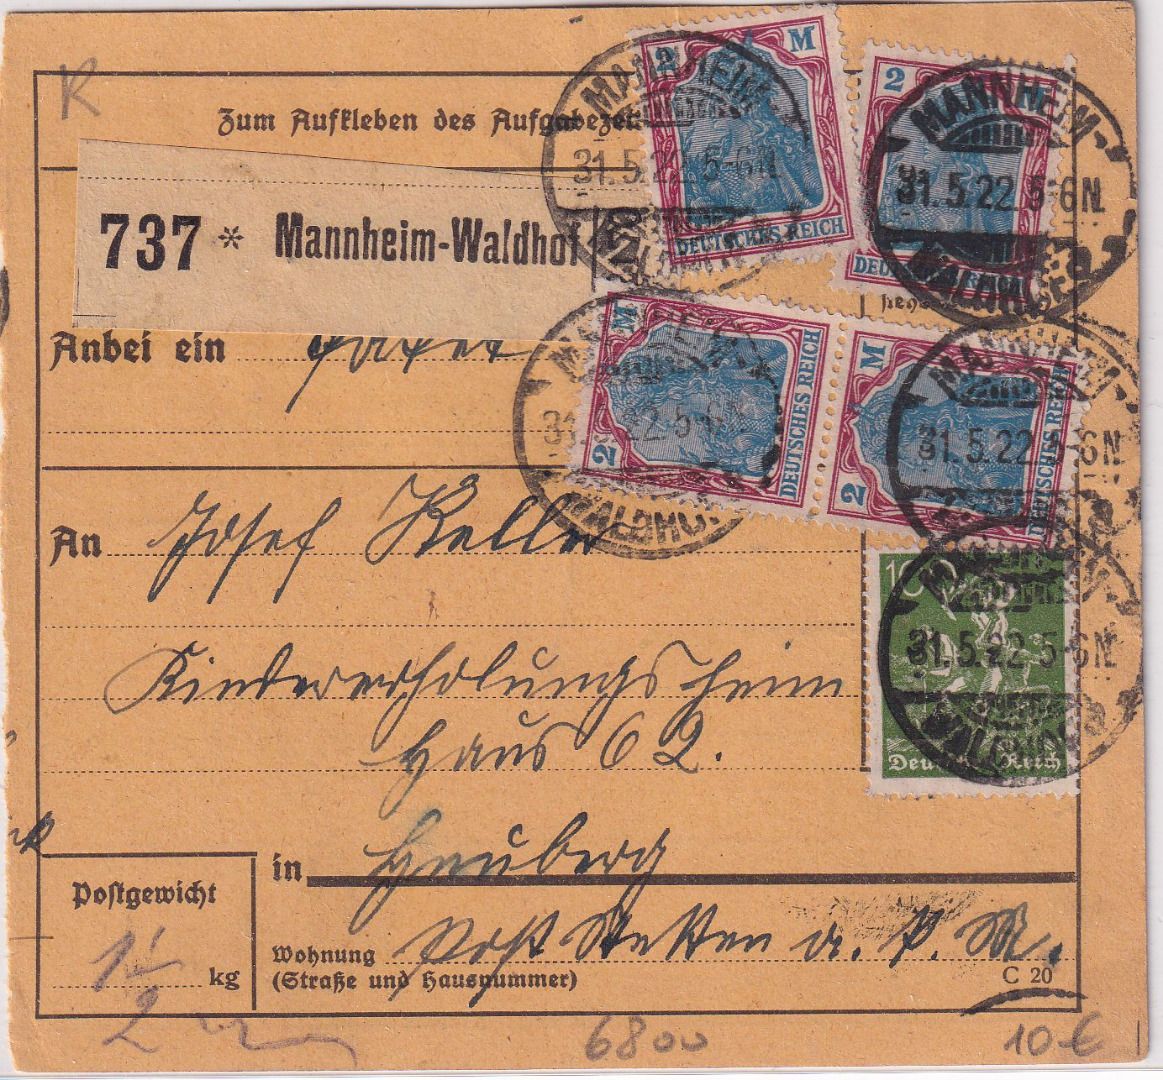 R
Zum Aufkleben des Aufgabezet
737 * Mannheim-Waldhof
2 M
DEUTSCHES REICH
MANNHEIM-
31.5.22. 5-6N.
WALDHOF
2 M
DEUTSCHES REICH
MANNHEIM-
31.5.22. 5-6N.
WALDHOF
Anbei ein Paket
2 M
DEUTSCHES REICH
MANNHEIM-
31.5.22. 5-6N
WALDHOF
2 M
DEUTSCHES REICH
MANNHEIM-
31.5.22. 5-6N
An Josef Keller
Kindererholungsheim
Haus 62.
160
Deutsches Reich
31.5.22 5-6N.
WALDHOF
in Heuberg
Postgewicht
kg
Wohnung Post Stetten a. k. M.
(Straße und Hausnummer)
C 20
6800
10 €